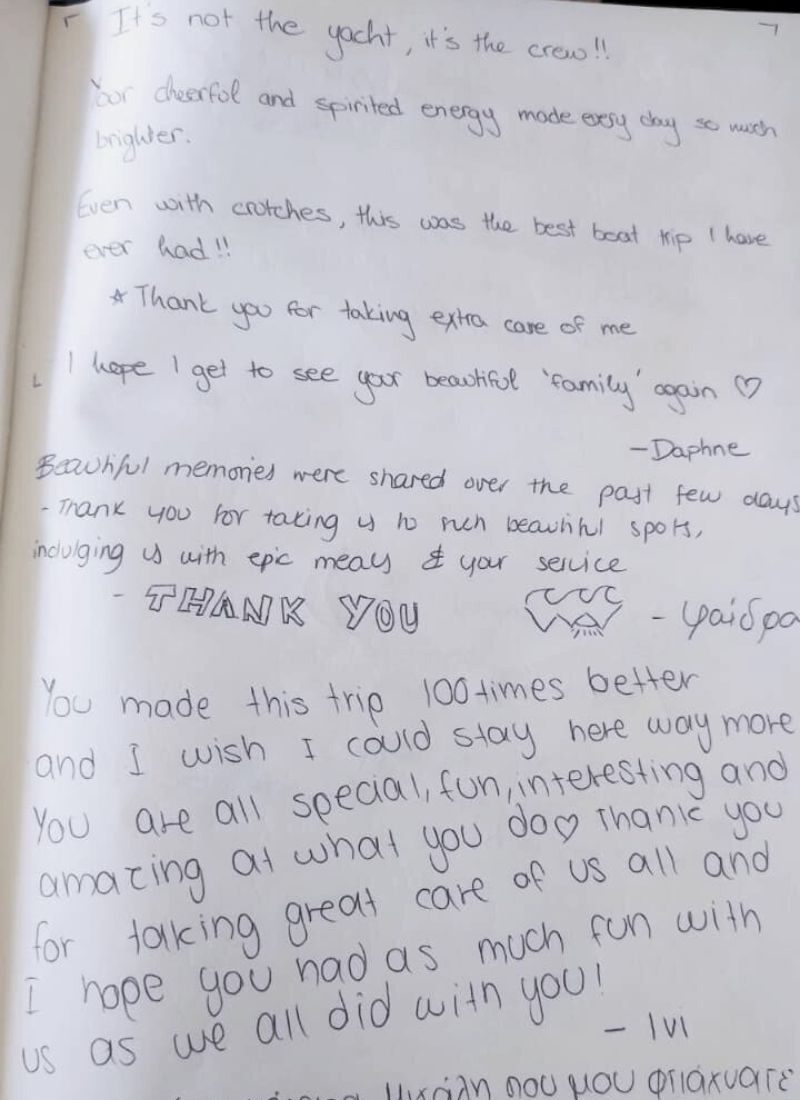 It's not the yacht, it's the crew!!
Your cheerful and spirited energy made every day so much
brighter.
Even with crutches, this was the best boat trip I have
ever had!!
* Thank you for taking extra care of me
I hope I get to see your beautiful 'family' again ♡
-Daphne
Beautiful memories were shared over the past few days
- Thank you for taking us to such beautiful spots,
indulging us with epic meals & your service
- THANK YOU
- Φαίδρα
You made this trip 100 times better
and I wish I could stay here way more
You are all special, fun, interesting and
amazing at what you do♡ Thank you
for taking great care of us all and
I hope you had as much fun with
us as we all did with you!
- Ivi
που μου φτιάχνατε